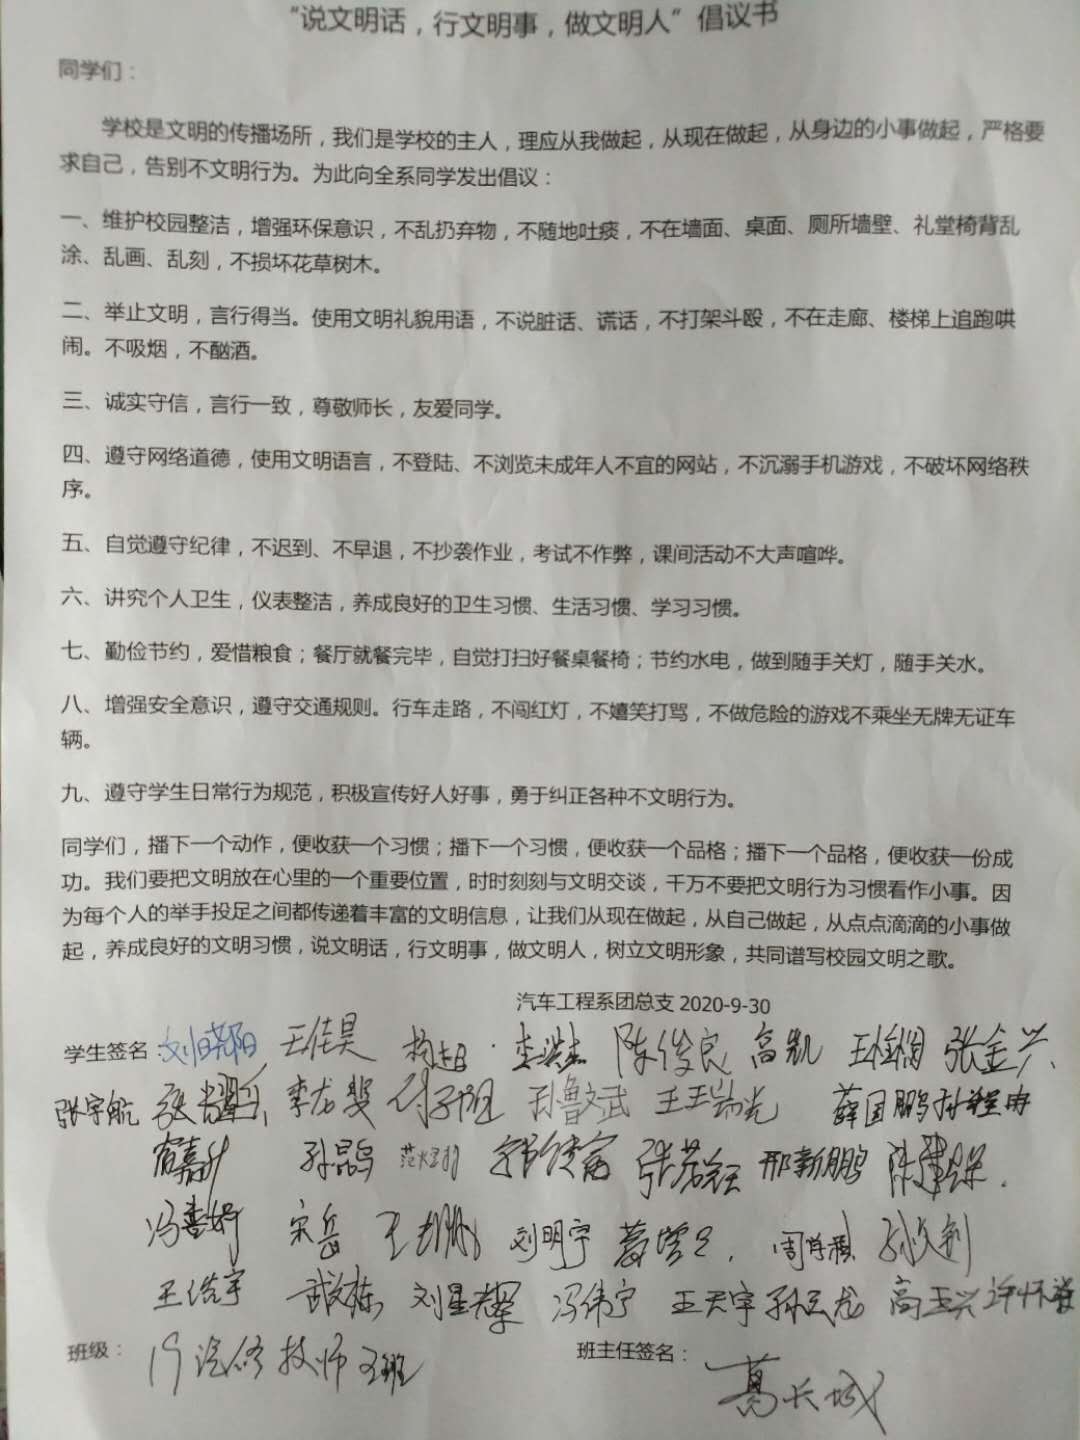 “说文明话，行文明事，做文明人”倡议书
同学们：
学校是文明的传播场所，我们是学校的主人，理应从我做起，从现在做起，从身边的小事做起，严格要
求自己，告别不文明行为。为此向全系同学发出倡议：
一、维护校园整洁，增强环保意识，不乱扔弃物，不随地吐痰，不在墙面、桌面、厕所墙壁、礼堂椅背乱
涂、乱画、乱刻，不损坏花草树木。
二、举止文明，言行得当。使用文明礼貌用语，不说脏话、谎话，不打架斗殴，不在走廊、楼梯上追跑哄
闹。不吸烟，不酗酒。
三、诚实守信，言行一致，尊敬师长，友爱同学。
四、遵守网络道德，使用文明语言，不登陆、不浏览未成年人不宜的网站，不沉溺手机游戏，不破坏网络秩
序。
五、自觉遵守纪律，不迟到、不早退，不抄袭作业，考试不作弊，课间活动不大声喧哗。
六、讲究个人卫生，仪表整洁，养成良好的卫生习惯、生活习惯、学习习惯。
七、勤俭节约，爱惜粮食；餐厅就餐完毕，自觉打扫好餐桌餐椅；节约水电，做到随手关灯，随手关水。
八、增强安全意识，遵守交通规则。行车走路，不闯红灯，不嬉笑打骂，不做危险的游戏不乘坐无牌无证车
辆。
九、遵守学生日常行为规范，积极宣传好人好事，勇于纠正各种不文明行为。
同学们，播下一个动作，便收获一个习惯；播下一个习惯，便收获一个品格；播下一个品格，便收获一份成
功。我们要把文明放在心里的一个重要位置，时时刻刻与文明交谈，千万不要把文明行为习惯看作小事。因
为每个人的举手投足之间都传递着丰富的文明信息，让我们从现在做起，从自己做起，从点点滴滴的小事做
起，养成良好的文明习惯，说文明话，行文明事，做文明人，树立文明形象，共同谱写校园文明之歌。
汽车工程系团总支 2020-9-30
学生签名： 刘晓阳 王佳昊 李洪杰 陈俊良 高凯 张金兴
张宇航 李龙斐 付子旭 孙鲁文武 王玉瑞光 薛国鹏
孙晶 邢新鹏
宋岳 王鹏 刘明宇
王浩宇 武文栋 刘星 冯伟宁 王天宇 孙云龙 高玉兴
班级： 19汽修技师 班 班主任签名：
葛长城